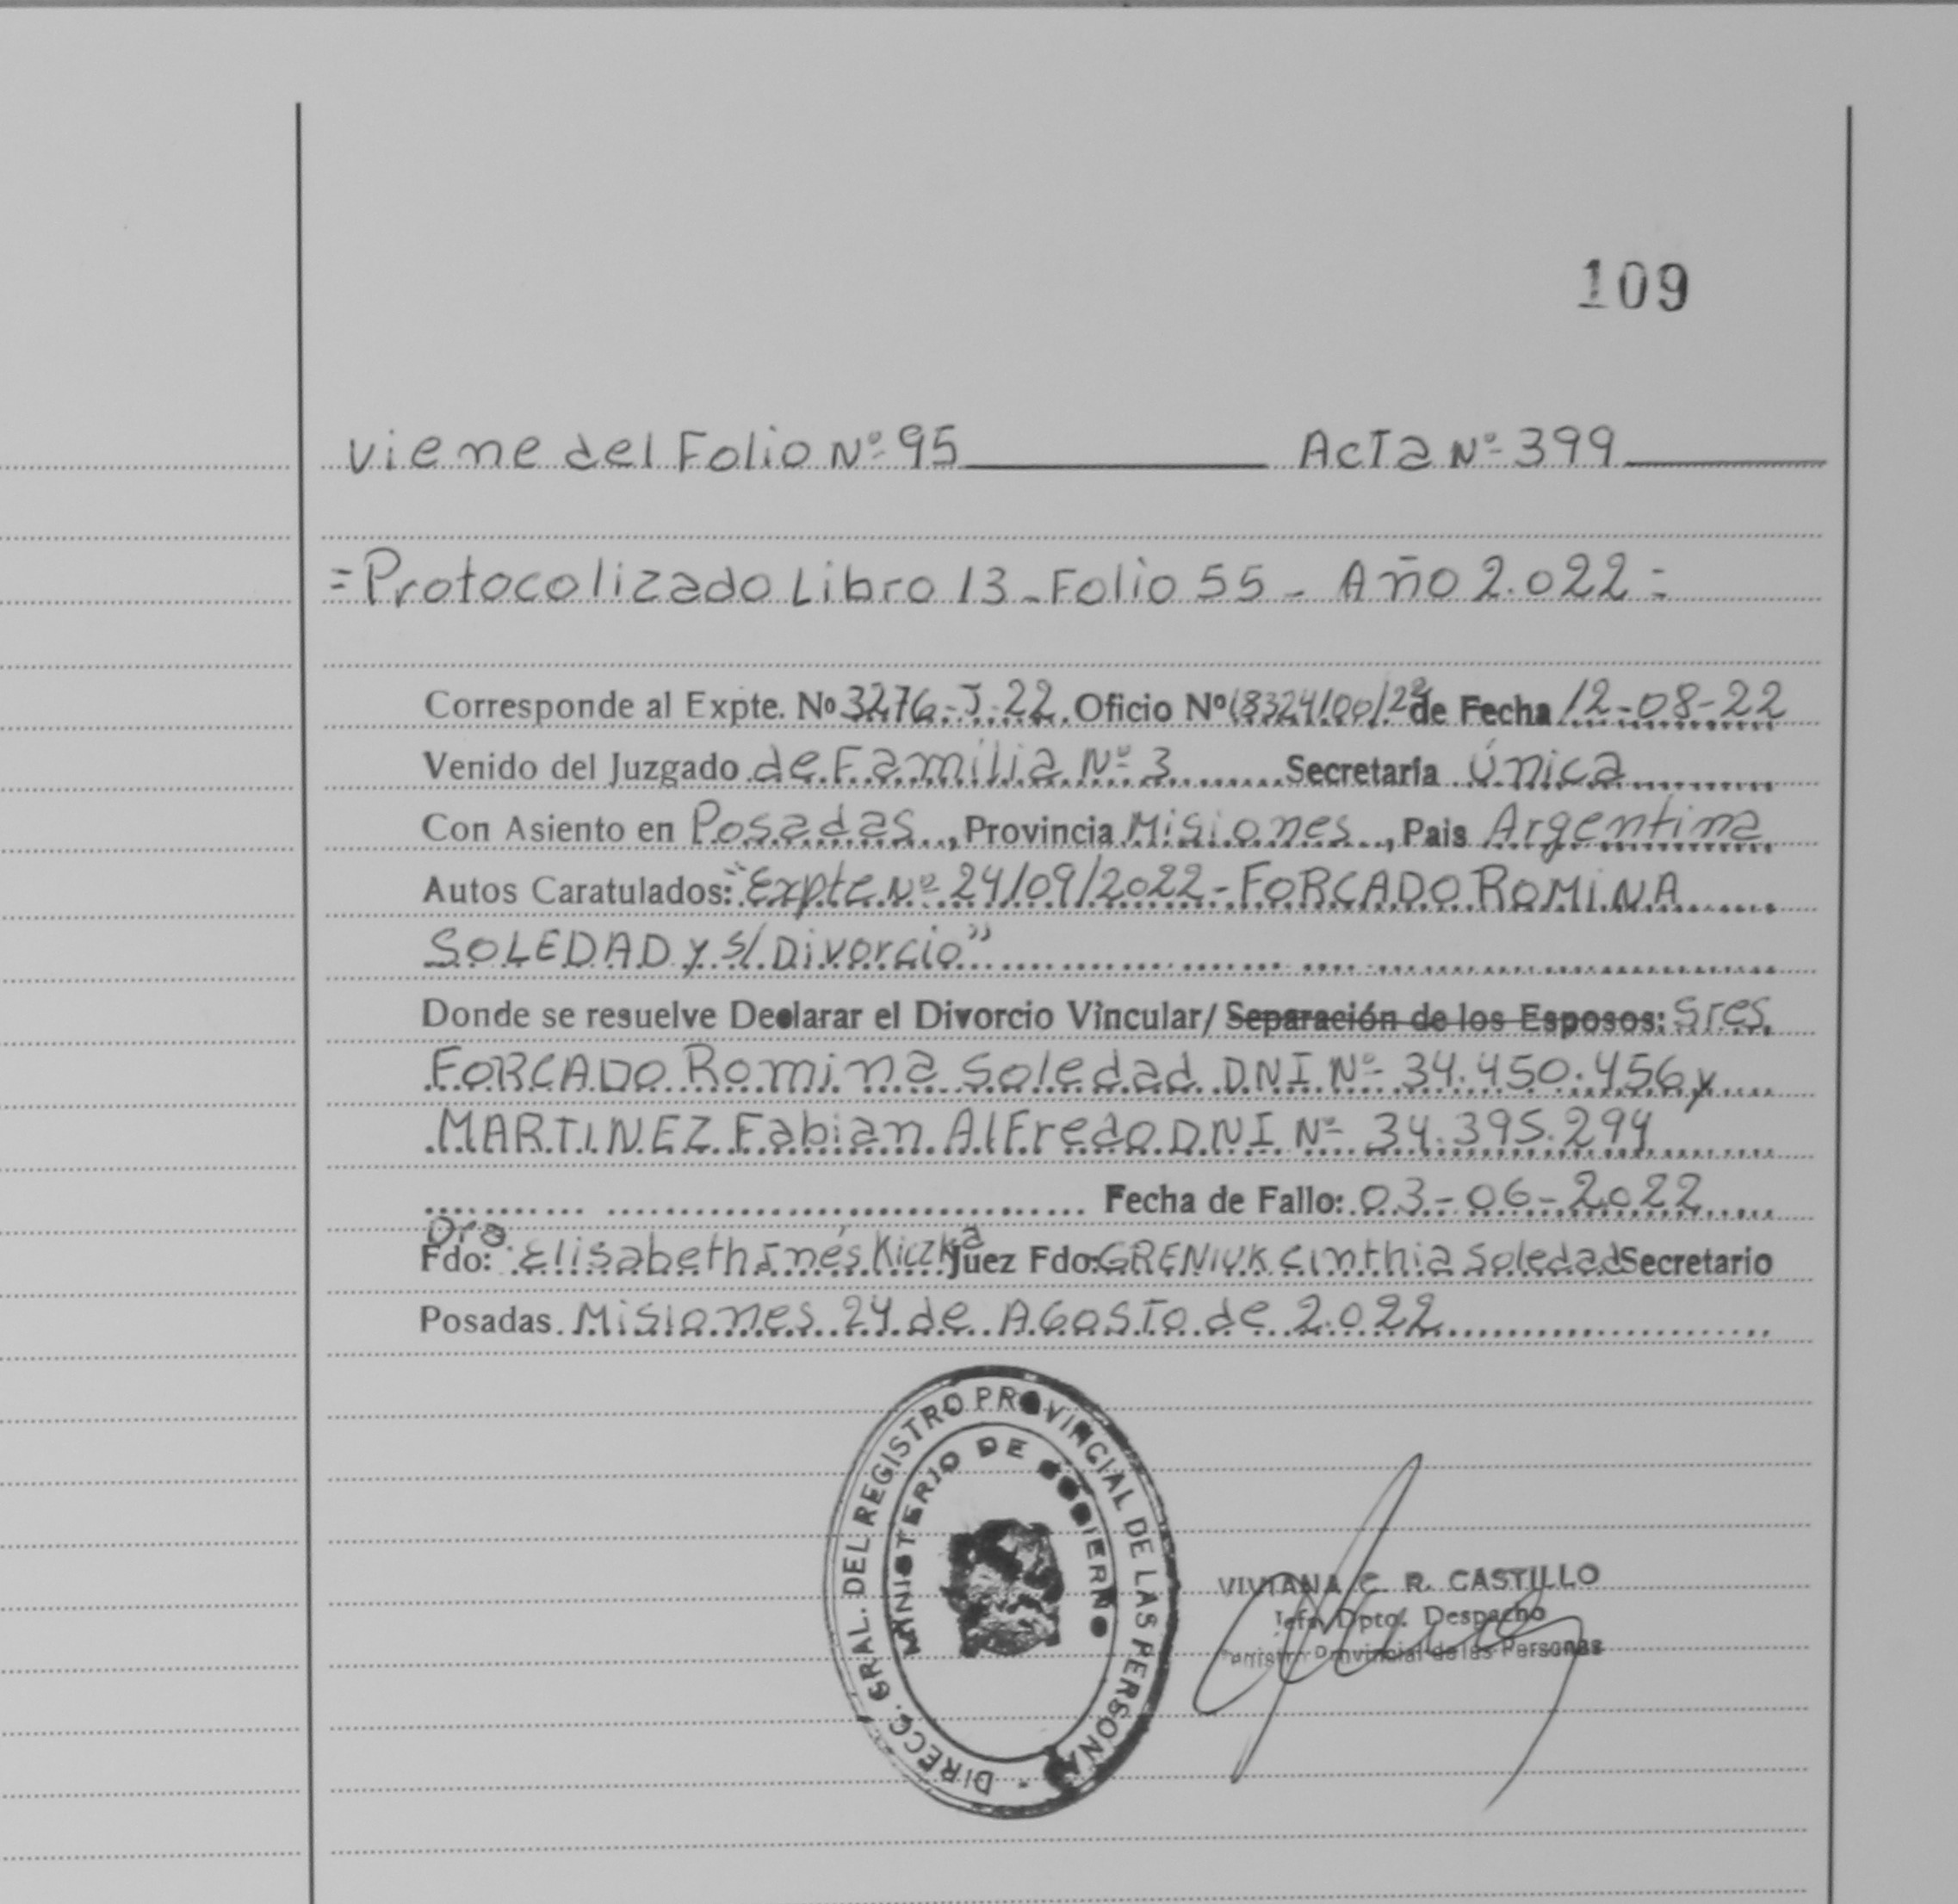 109
Viene del Folio Nº 95 Acta Nº 399
=Protocolizado Libro 13-Folio 55- Año 2.022=
Corresponde al Expte. Nº 3276-J-22 Oficio Nº 18324/00/22 de Fecha 12-08-22
Venido del Juzgado de Familia Nº 3 Secretaría única
Con Asiento en Posadas, Provincia Misiones, Pais Argentina
Autos Caratulados: "Expte Nº 24109/2022-FORCADO ROMINA
SOLEDAD y s/ Divorcio"
Donde se resuelve Declarar el Divorcio Vincular/ Separación de los Esposos: Sres
FORCADO Romina Soledad DNI Nº 34.450.456 y
MARTINEZ Fabian Alfredo DNI Nº 34.395.294
Fecha de Fallo: 03-06-2022
Fdo: Dra. Elisabeth Inés Kiczka Juez Fdo: GRENIUK Cinthia Soledad Secretario
Posadas Misiones 24 de Agosto de 2.022
DIRECC. GRAL. DEL REGISTRO PROVINCIAL DE LAS PERSONAS
MINISTERIO DE GOBIERNO
VIVIANA C. R. CASTILLO
Jefa Dpto. Despacho
Provincial de las Personas